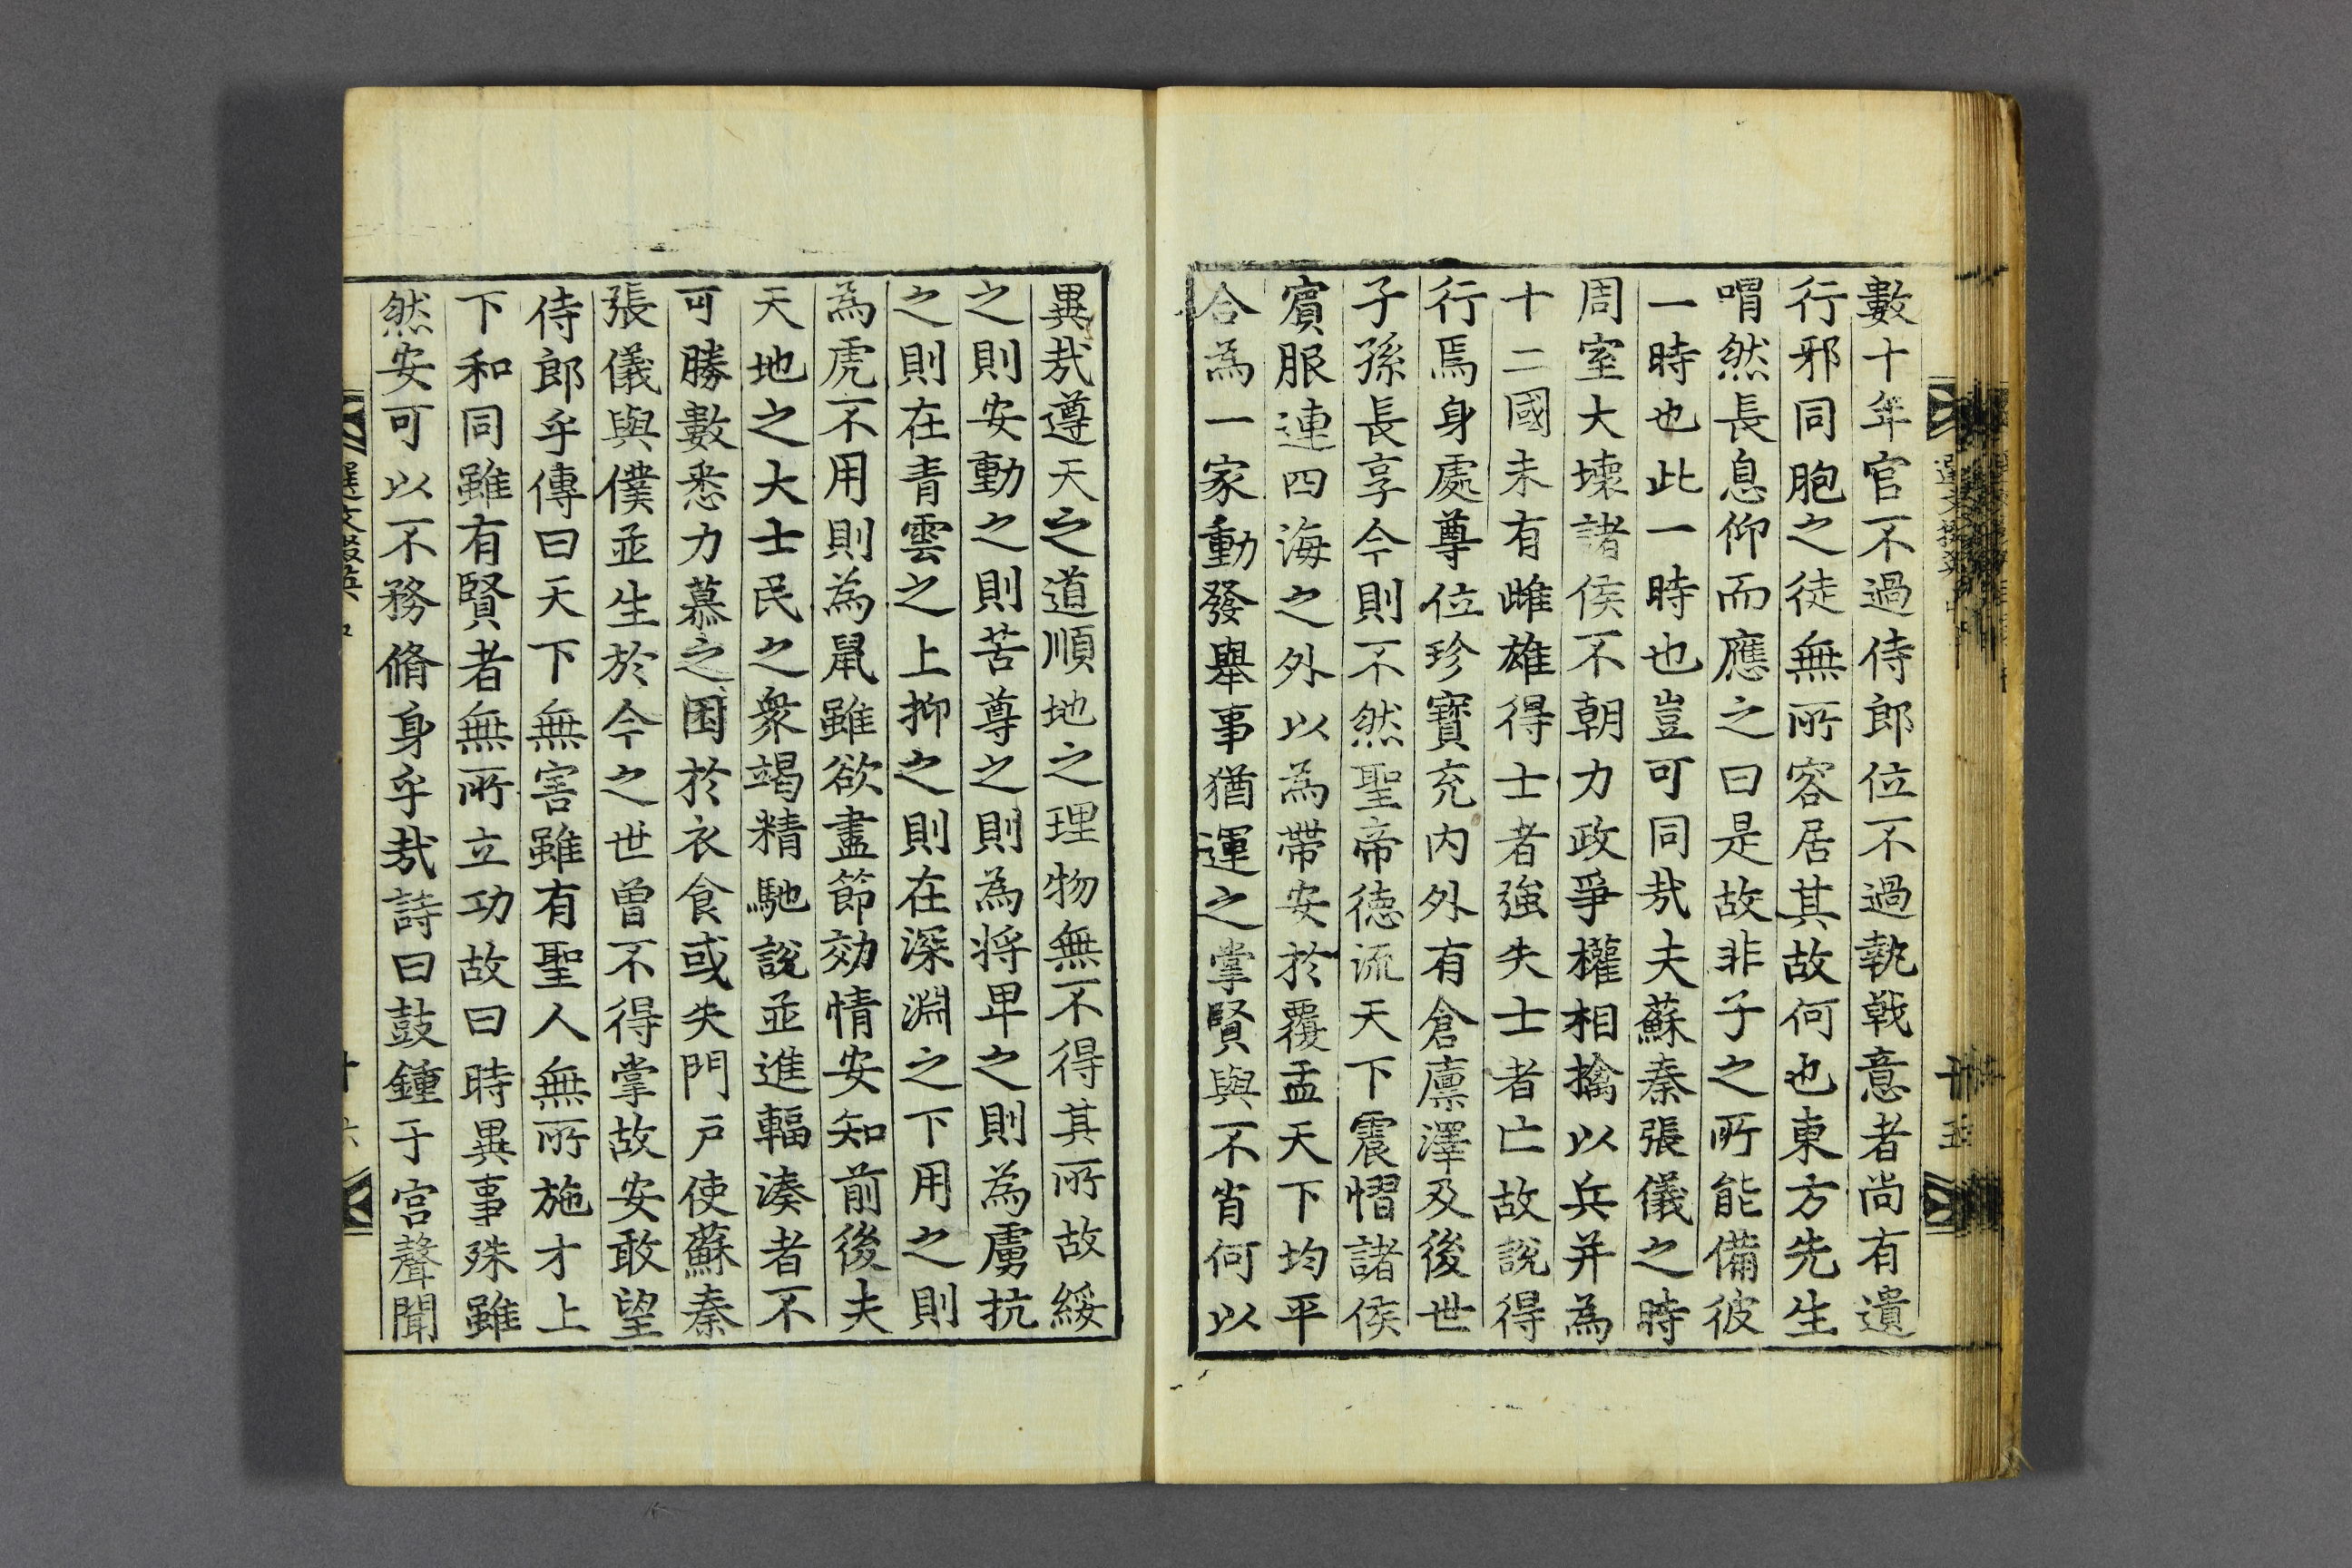 數十年官不過侍郎位不過執戟意者尚有遺
行邪同胞之徒無所容居其故何也東方先生
喟然長息仰而應之曰是故非子之所能備彼
一時也此一時也豈可同㦲夫蘇秦張儀之時
周室大壞諸侯不朝力政爭權相擒以兵并為
十二國未有雌雄得士者強失士者亡故說得
行焉身處尊位珍寶充內外有倉廩澤及後世
子孫長享今則不然聖帝德流天下震慴諸侯
賔服連四海之外以為帶安於覆盂天下均平
合為一家動發舉事猶運之掌賢與不肖何以
異㦲遵天之道順地之理物無不得其所故綏
之則安動之則苦尊之則為將卑之則為虜抗
之則在青雲之上抑之則在深淵之下用之則
為虎不用則為鼠雖欲盡節効情安知前後夫
天地之大士民之衆竭精馳說並進輻湊者不
可勝數悉力慕之困於衣食或失門戶使蘇秦
張儀與僕並生於今之世曾不得掌故安敢望
侍郎乎傳曰天下無害雖有聖人無所施才上
下和同雖有賢者無所立功故曰時異事殊雖
然安可以不務脩身乎㦲詩曰鼓鍾于宮聲聞